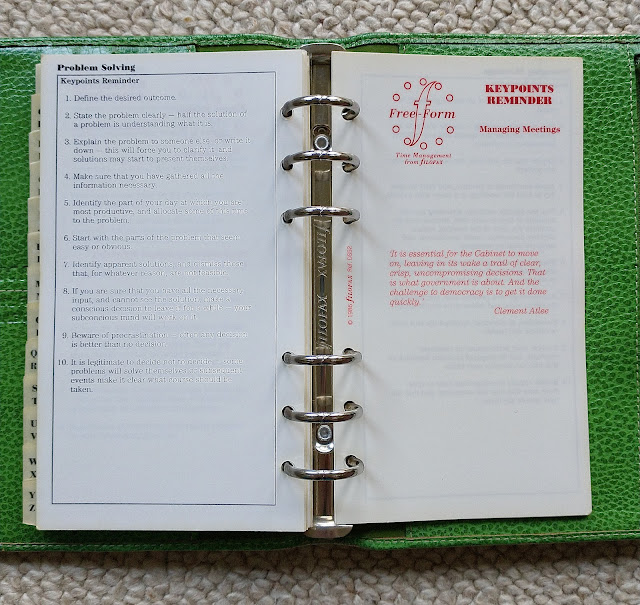 Problem Solving
Keypoints Reminder
1. Define the desired outcome.
2. State the problem clearly — half the solution of
a problem is understanding what it is.
3. Explain the problem to someone else, or write it
down — this will force you to clarify it, and
solutions may start to present themselves.
4. Make sure that you have gathered all the
information necessary.
5. Identify the part of your day at which you are
most productive, and allocate some of
to the problem.
6. Start with the parts of the problem
easy or obvious.
7. Identify apparent solutions
that, for whatever reason, are not
8. If you are sure that you have all the necessary
input, and cannot
conscious decision to leave it
subconscious mind will work on it.
9. Beware of procrastination — often any decision
is better than no decision.
10. It is legitimate to decide not to decide — some
problems will solve themselves or subsequent
events make it clear what course should be
taken.
Q
R
S
T
U
V
W
X
Y
Z
FILOFAX
© 1986 filofax Ref
Free-Form
Time Management
from filofax
KEYPOINTS
REMINDER
Managing Meetings
'It is essential for the Cabinet to move
on, leaving in its wake a trail of clear,
crisp, uncompromising decisions. That
is what government is about. And the
challenge to democracy is to get it done
quickly.'
Clement Atlee